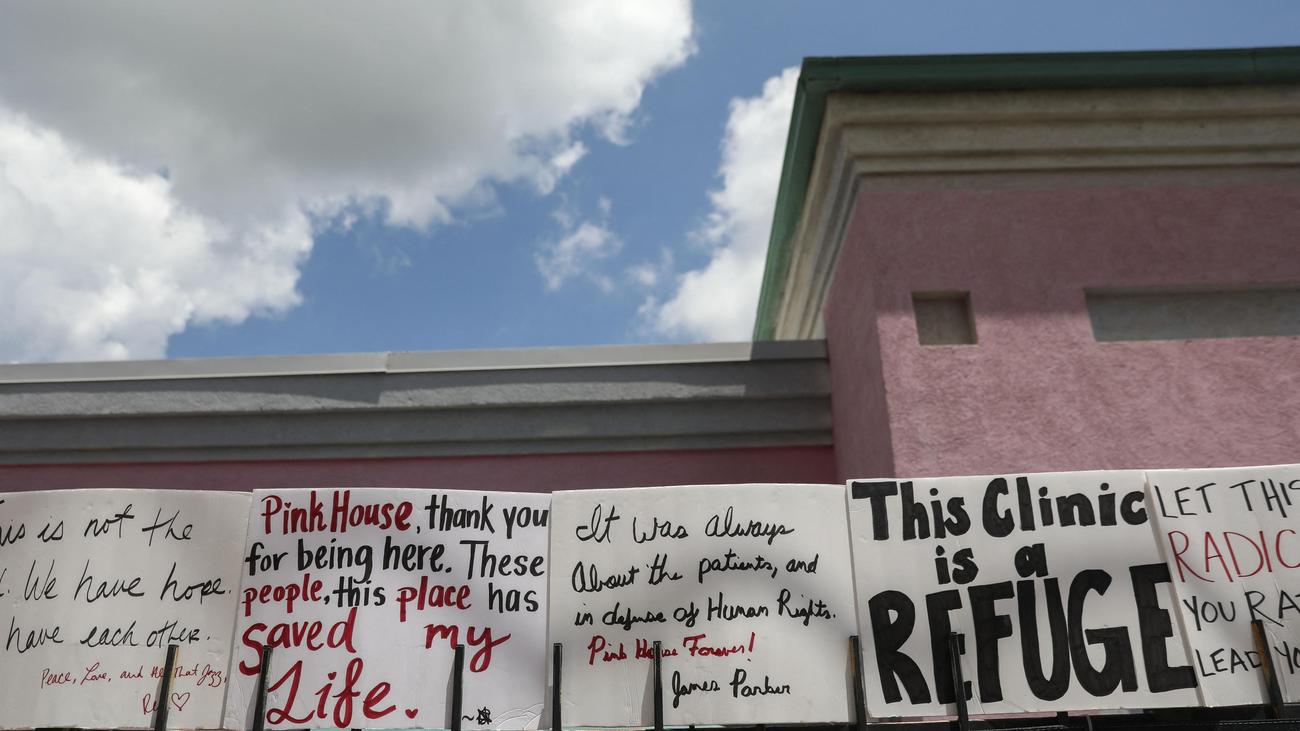 is is not the
. We have hope.
have each other.
Peace, Love, and All That Jazz,
Pink House, thank you
for being here. These
people, this place has
saved my
Life.
It Was always
About the patients, and
in defense of Human Rights.
Pink House Forever!
James Parker
This Clinic
is a
REFUGE
LET THIS
RADIC
YOU RA
LEAD YO